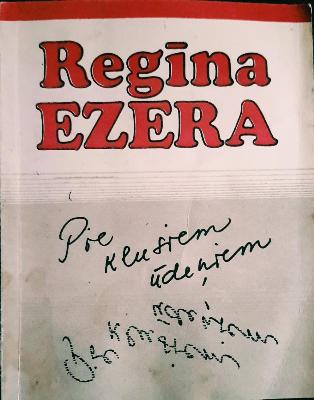 Regīna
EZERA
Pie
klusiem
ūdeņiem